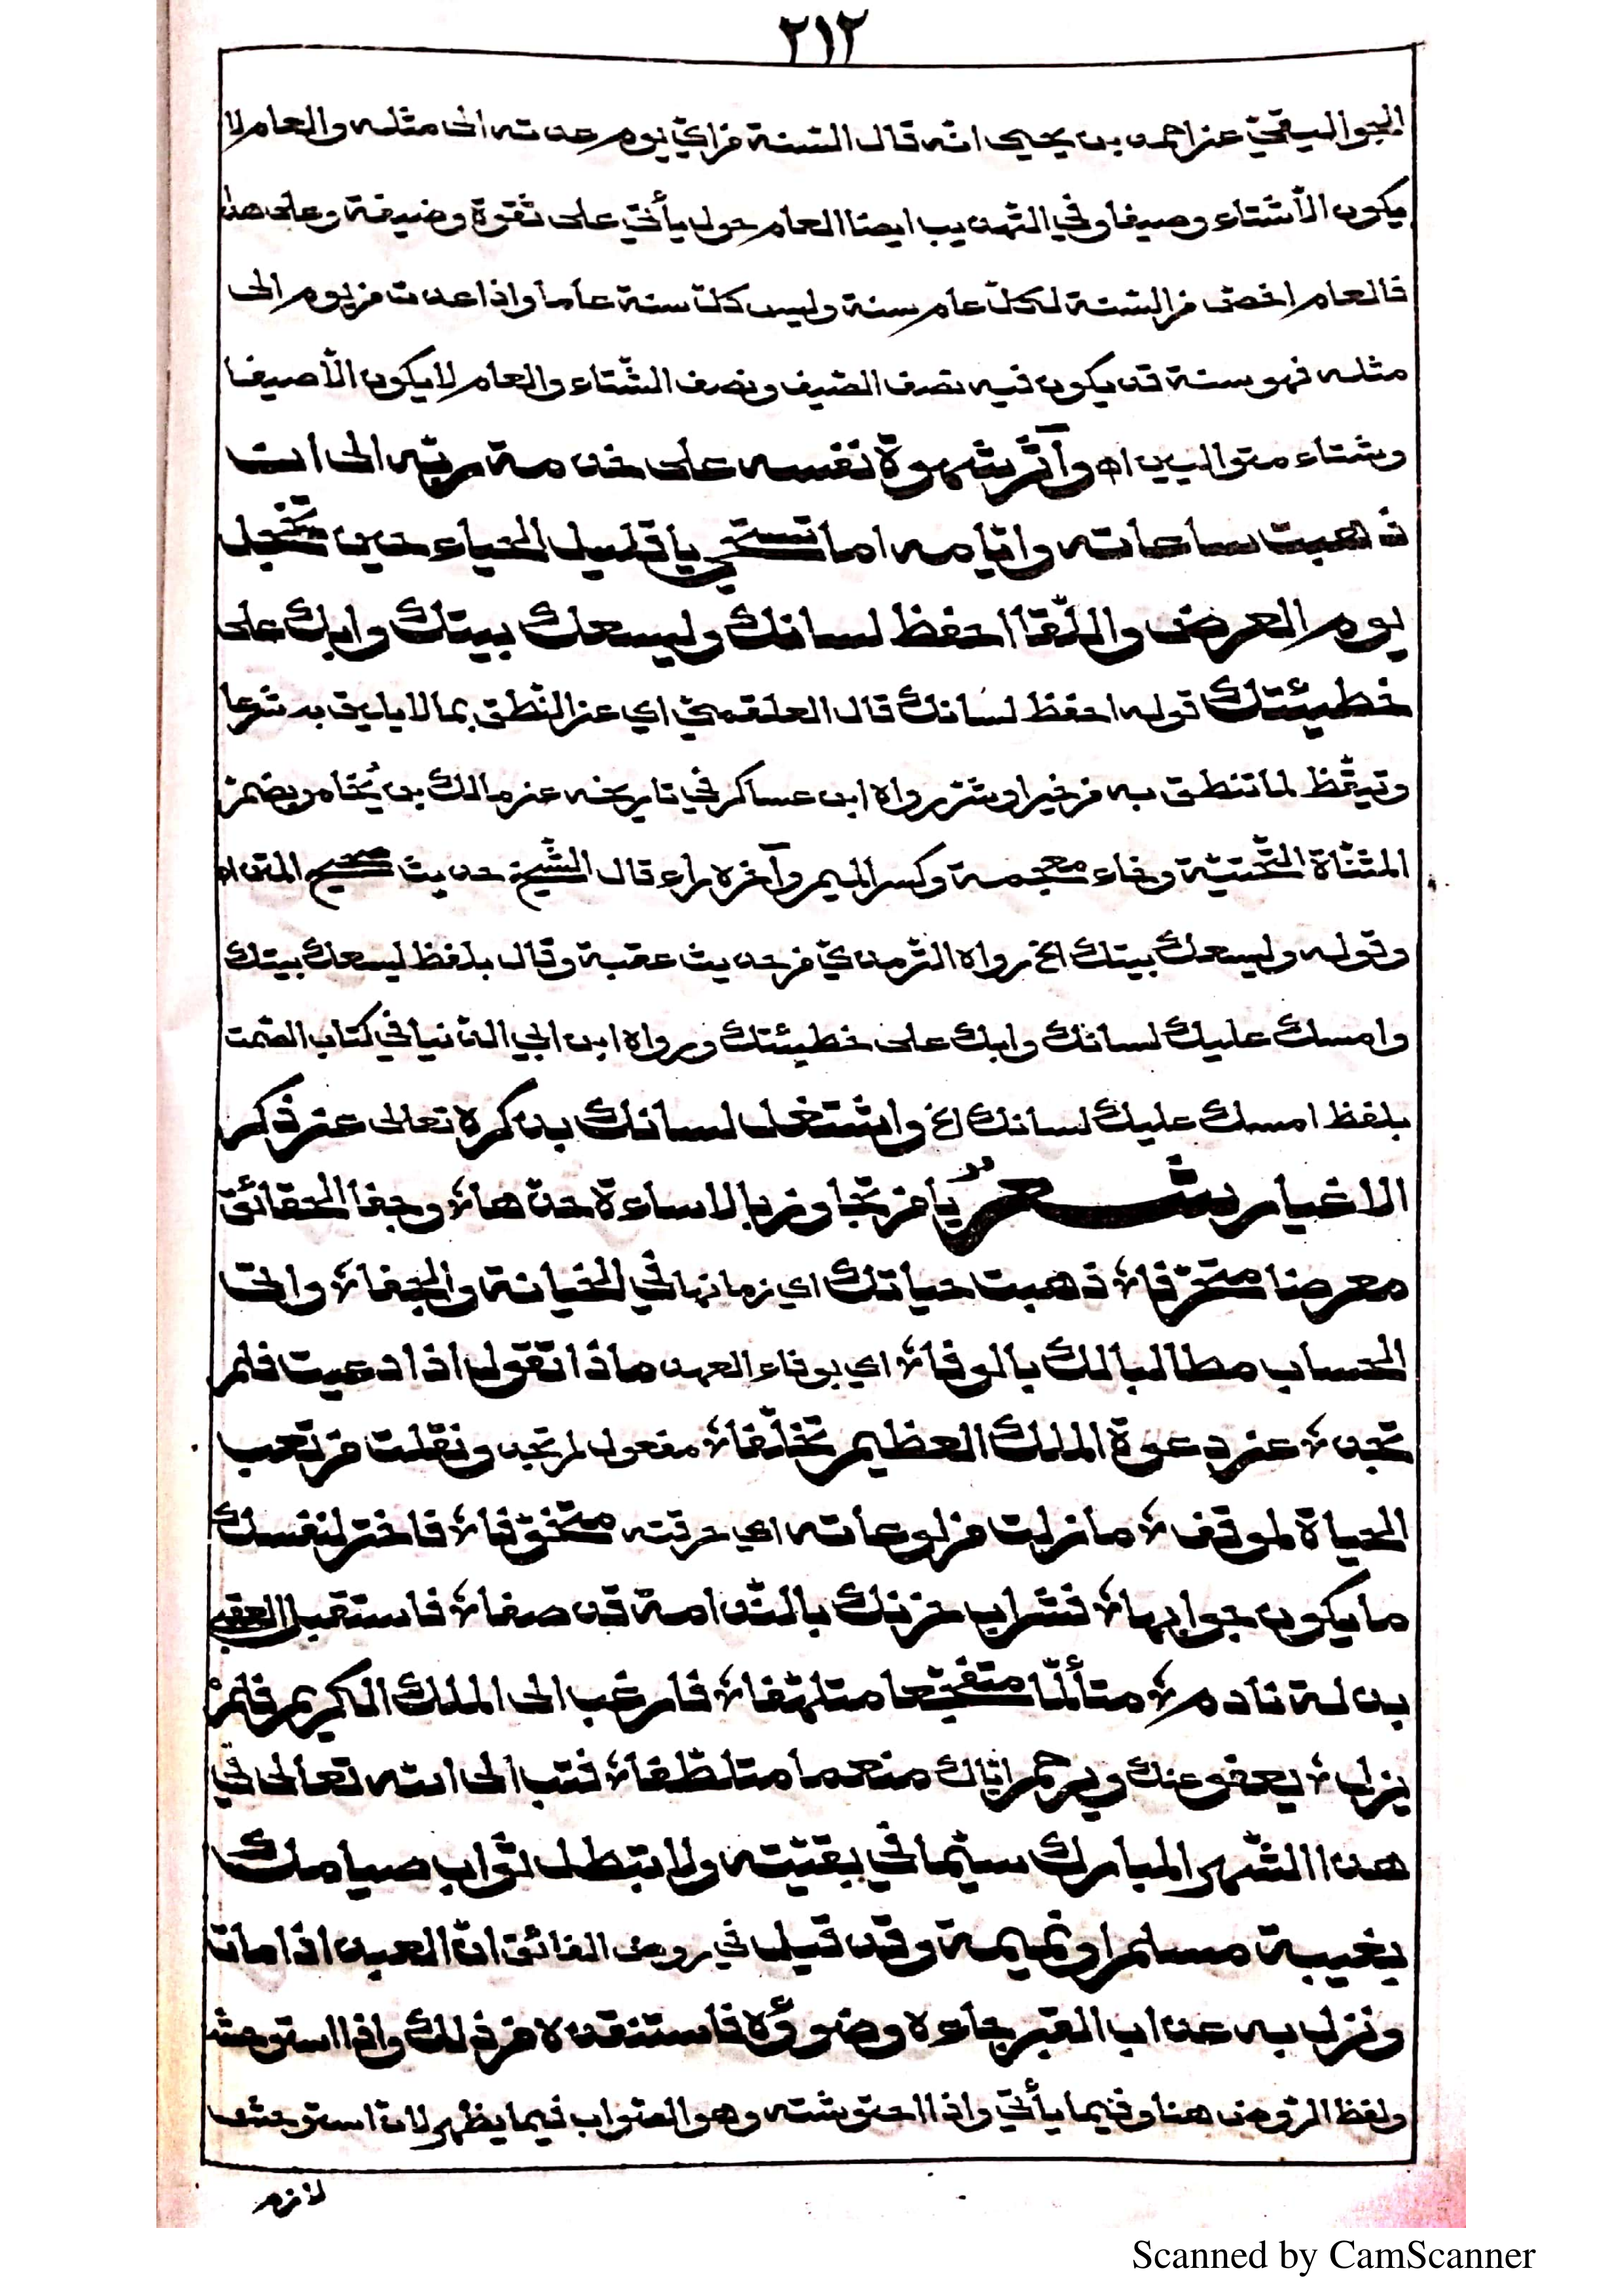 ٢١٢
الجواليقي عن احمد بن يحيى انه قال السّنة من اي يوم عدته الى مثله والعام لا
يكون الّا شتاء وصيفا وفي التّهذيب ايضا العام حول يأتي على شتوة وضيفة وعلى هذا
فالعام اخصّ من السّنة لكلّ عام سنة وليس كلّ سنة عاما واذا عدت من يوم الى
مثله فهو سنة قد يكون فيه نصف الصّيف ونصف الشّتاء والعام لا يكون الّا صيفا
وشتاء متواليين اه وآثر شهوة نفسه على خدمة ربّه الى ان
ذهبت ساعاته وايّامه اما تستحي يا قليل الحياء حين تخجل
يوم العرض واللّقا احفظ لسانك وليسعك بيتك وابك على
خطيئتك قوله احفظ لسانك قال العلقميّ اي عن النّطق بما لا يليق به شرعا
وتيقّظ لما تنطق به من خير او شرّ رواه ابن عساكر في تاريخه عن مالك بن يُخامر بضمّ
المثنّاة التّحتيّة وخاء معجمة وكسر الميم وآخره راء قال الشّيخ حديث صحيح المتن اه
وقوله وليسعك بيتك الخ رواه التّرمذي من حديث عقبة وقال بلفظ ليسعك بيتك
وامسك عليك لسانك وابك على خطيئتك ورواه ابن ابي الدّنيا في كتاب الصّمت
بلفظ امسك عليك لسانك الخ واشتغل لسانك بذكره تعالى عن ذكر
الاغيار شعرٌ يا من تجاوز بالاساءة حدّها وجفا الحقائق
معرضا متحرّفا ذهبت حياتك اي زمانها في الخيانة والجفا واتى
الحساب مطالبا لك بالوفا اي بوفاء العهد ماذا تقول اذا دعيت فلم
تجد عن دعوة الملك العظيم تخلّفا مفعول لم تجد ونقلت من تعب
الحياة لموقف ما زلت من لوعاته اي حرقته متخوّفا فاختر لنفسك
ما يكون جوابها فشراب حزنك بالنّدامة قد صفا فاستقبل العقبى
بذلة نادم متألّما متفجّعا متلهّفا فارغب الى الملك الكريم فلم
يزل يعفو عنك ويرحم ايّاك منعما متلطّفا فتب الى الله تعالى في
هذا الشّهر المبارك سيّما في بقيّته ولا تبطل ثواب صيامك
بغيبة مسلم او نميمة وقد قيل في روض الفائق انّ العبد اذا مات
ونزل به عذاب القبر جاءه وضوؤه فاستنقذه من ذلك واذا استوحش
ولفظ الرّوض هنا وفيما يأتي واذا احتوشته وهو الصّواب فيما يظهر لانّ استوحش
لازم
Scanned by CamScanner